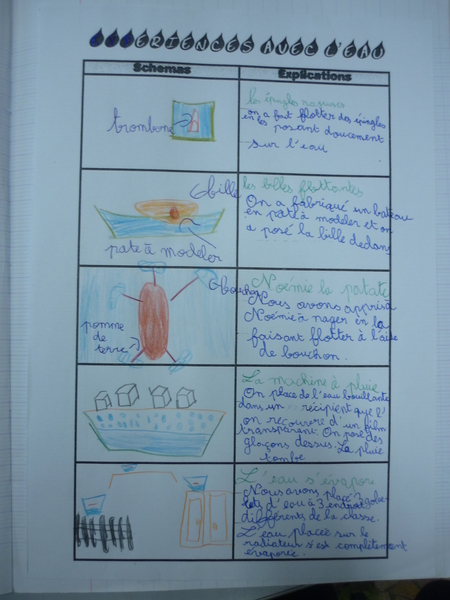 EXPÉRIENCES AVEC L'EAU
Schémas
Explications
trombone
les épingles nageuses
on a fait flotter des épingles
en les posant doucement
sur l'eau
bille
pate à modeler
les billes flottantes
On a fabriqué un bateau
en pate à modeler et on
a posé la bille dedans
bouchon
pomme
de
terre
Noémie la patate
Nous avons appris à
Noémie à nager en la
faisant flotter à l'aide
de bouchon.
La machine à pluie
On place de l'eau bouillante
dans un récipient que l'
on recouvre d'un film
transparent. On pose des
glaçons dessus. La pluie
tombe
L'eau s'évapore
Nous avons placé 3 gobe-
lets d'eau à 3 endroits
différents de la classe.
L'eau placée sur le
radiateur s'est complètement
évaporée.